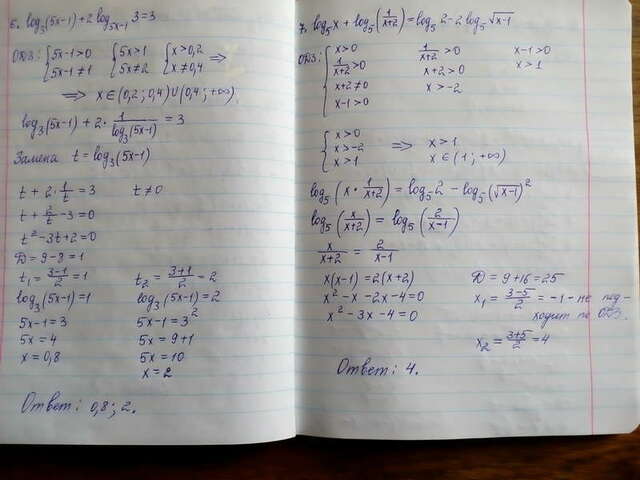 6. log₃(5x-1)+2 log₅ₓ₋₁ 3=3
ОДЗ: { 5x-1>0 { 5x>1 { x>0,2 ⇒
5x-1≠1 5x≠2 x≠0,4
⇒ x∈(0,2; 0,4)∪(0,4; +∞)
log₃(5x-1)+2·1/log₃(5x-1) = 3
Замена t=log₃(5x-1)
t+2·1/t=3 t≠0
t+2/t-3=0
t²-3t+2=0
D=9-8=1
t₁=(3-1)/2=1 t₂=(3+1)/2-2
log₃(5x-1)=1 log₃(5x-1)=2
5x-1=3 5x-1=3²
5x=4 5x=9+1
x=0,8 5x=10
x=2
Ответ: 0,8; 2.
7. log₅x+log₅(1/(x+2))=log₅2-2log₅√(x-1)
ОДЗ: { x>0 1/(x+2)>0 x-1>0
1/(x+2)>0 x+2>0 x>1
x+2≠0 x>-2
x-1>0
{ x>0
x>-2 ⇒ x>1
x>1 x∈(1; +∞)
log₅(x·1/(x+2))=log₅2-log₅(√(x-1))²
log₅(x/(x+2))=log₅(2/(x-1))
x/(x+2)=2/(x-1)
x(x-1)=2(x+2) D=9+16=25
x²-x-2x-4=0 x₁=(3-5)/2=-1-не под-
x²-3x-4=0 ходит по ОДЗ.
x₂=(3+5)/2=4
Ответ: 4.